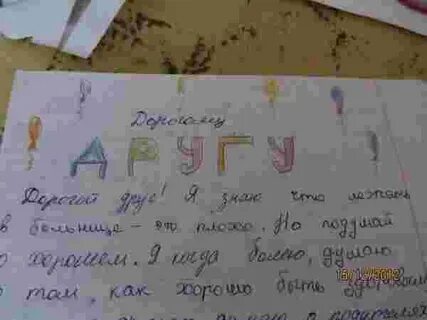 Дорогому
ДРУГУ
Дорогой друг! Я знаю что лежать
в больнице - это плохо. Но подумай
о хорошем. Я когда болею, думаю
о том, как хорошо быть здоровым
15/12/2012